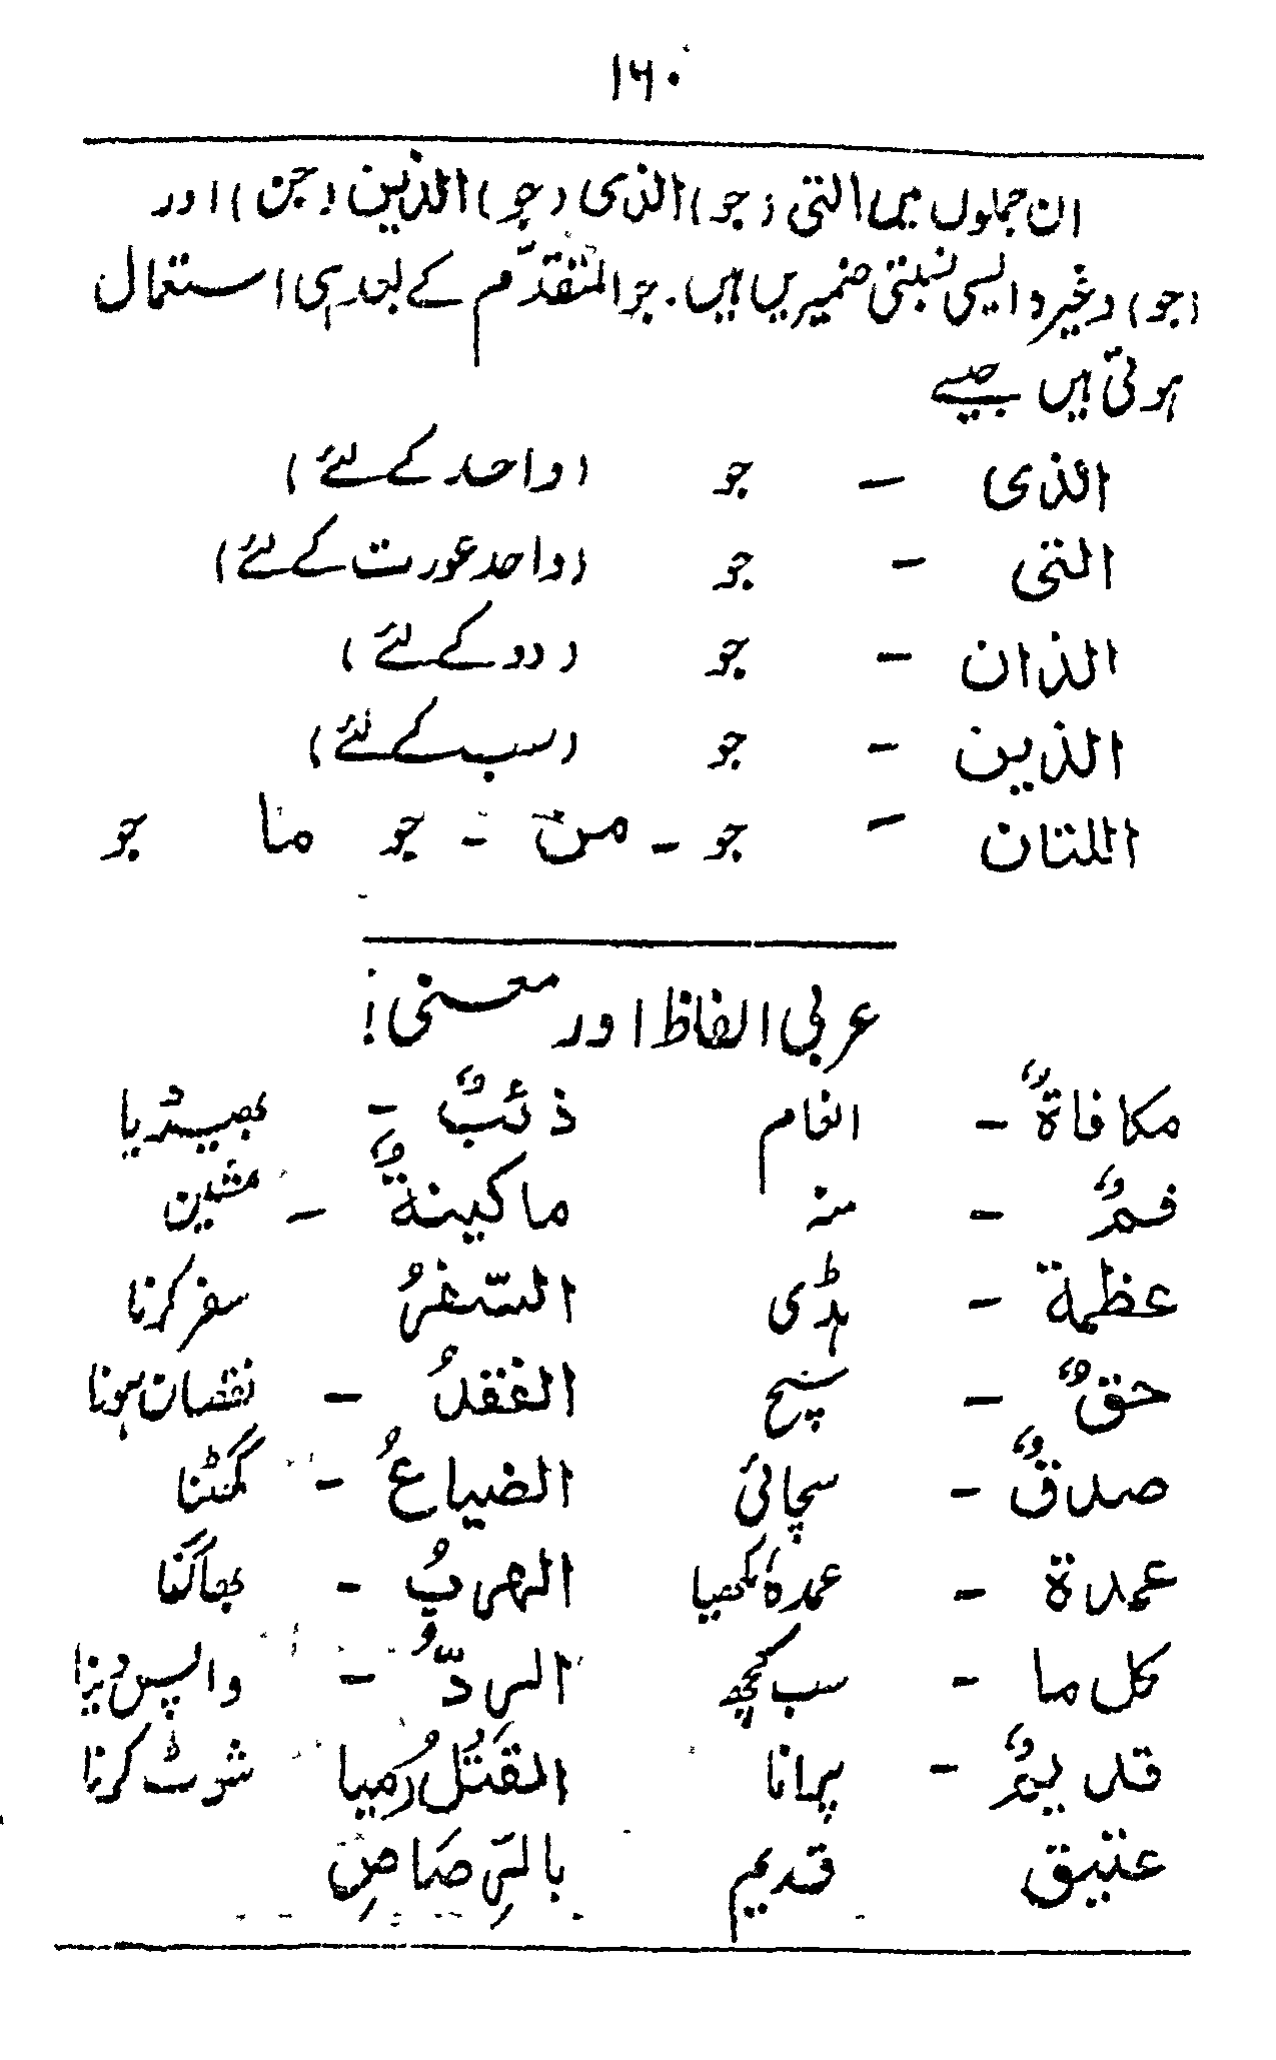 ۱۶۰
ان جملوں میں التی (جو) الذی (جو) الذین (جن) اور
(جو) وغیرہ ایسی نسبتی ضمیریں ہیں۔ جو المتقدّم کے بعد ہی استعمال
ہوتی ہیں جیسے
الذی - جو (واحد کے لئے)
التی - جو (واحد عورت کے لئے)
الذان - جو (دو کے لئے)
الذین - جو (سب کے لئے)
اللتان - جو - من - جو ما جو
عربی الفاظ اور معنی!
مکافاۃٌ - انعام ذئبٌ - بھیڑیا
فمٌ - منہ ماکینۃٌ - مشین
عظمۃ - ہڈی السّفرُ سفر کرنا
حقٌ - سچ الفقدُ - نقصان ہونا
صدقٌ - سچائی الضیاعُ - گھٹنا
عمدۃ - عمدہ گھٹیا الھربُ - بھاگنا
کل ما - سب کچھ الردّ - واپس دینا
قدیمٌ - پرانا القَتُلُ رُمیا شوٹ کرنا
عتیق قدیم بالرِّصَاصِ